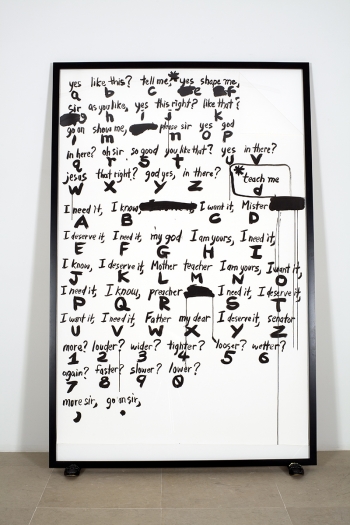 yes like this? tell me, * yes shape me,
a b c e f
sir as you like, yes this right? like that?
h i j k
go on show me, please sir yes god
l m n o p
in here? oh sir so good you like that? yes in there?
q r s t u v
jesus that right? god yes, in there? * teach me
w x y z d
I need it, I know I want it, Mister
A B C D
I deserve it, I need it, my god I am yours, I need it,
E F G H I
I know, I deserve it, Mother teacher I am yours, I want it,
J K L M N O
I need it, I know, preacher I need it, I deserve it,
P Q R S T
I want it, I need it, Father my dear I deserve it, senator
U V W X Y Z
more? louder? wider? tighter? looser? wetter?
1 2 3 4 5 6
again? faster? slower? lower?
7 8 9 0
more sir, go on sir,
, .